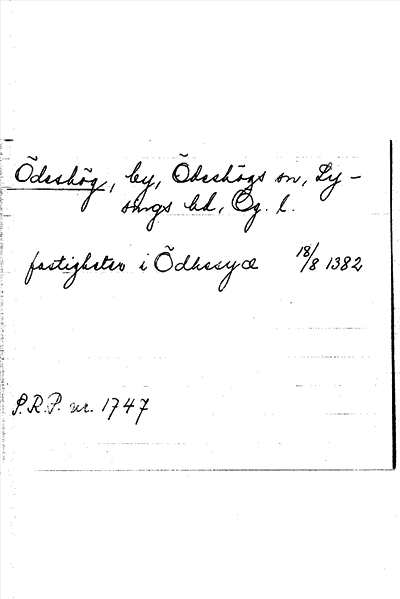 Ödeshög, by, Ödeshögs sn, Ly-
sings hd, Ög. l.
fastigheter i Ödhesyø 18/8 1382
P.R.P. nr. 1747